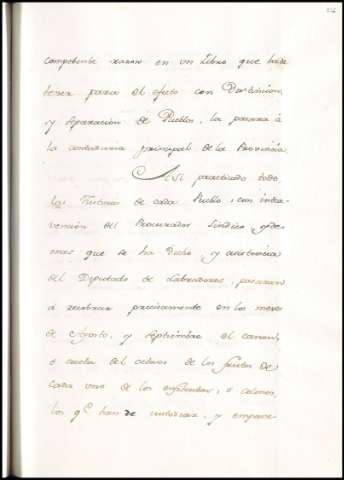 competente razon en un Libro que ha de
tener para el efecto con Distincion,
y separacion de Pueblos, la pasara à
la contaduria principal de la Provincia
Asi practicado todo,
las Justicias de cada Pueblo, con inter-
vencion del Procurador Sindico y de-
mas que se ha dicho, y asistencia
del Diputado de Labradores, pasaran
á cobrar precisamente en los meses
de Agosto, y Septiembre el canon,
de los frutos de
cada uno de los ò colonos,
los q.e han de, y